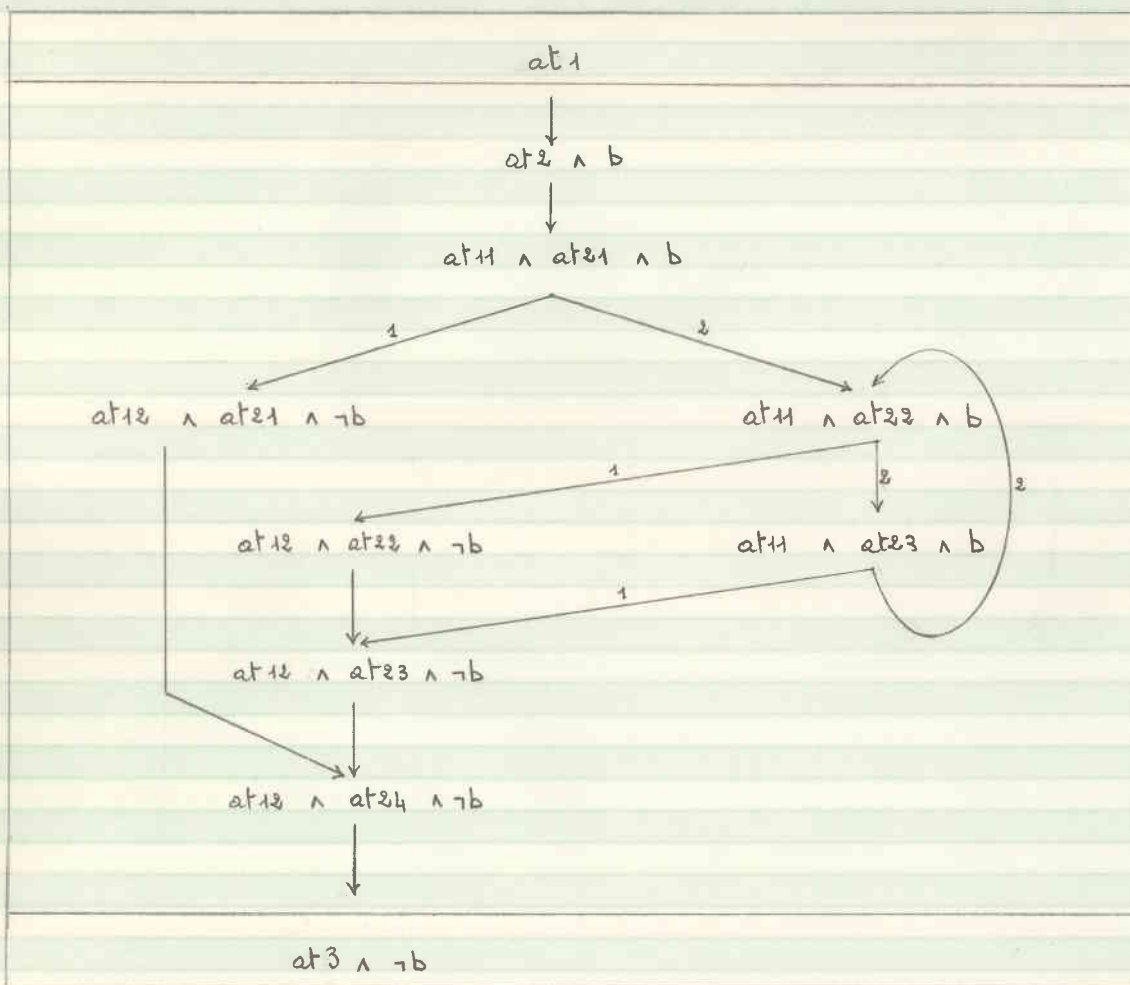 at 1
at2 ∧ b
at11 ∧ at21 ∧ b
1 2
at12 ∧ at21 ∧ ¬b at11 ∧ at22 ∧ b
1 2 2
at12 ∧ at22 ∧ ¬b at11 ∧ at23 ∧ b
1
at12 ∧ at23 ∧ ¬b
at12 ∧ at24 ∧ ¬b
at3 ∧ ¬b